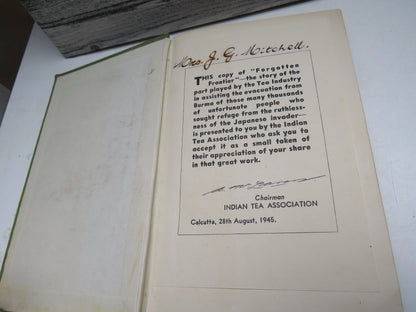 Mrs. J. G. Mitchell.
THIS copy of "Forgotten
Frontier"—the story of the
part played by the Tea Industry
in assisting the evacuation from
Burma of those many thousands
of unfortunate people who
sought refuge from the ruthless-
ness of the Japanese invader—
is presented to you by the Indian
Tea Association who ask you to
accept it as a small token of
their appreciation of your share
in that great work.
Chairman
INDIAN TEA ASSOCIATION
Calcutta, 28th August, 1945.